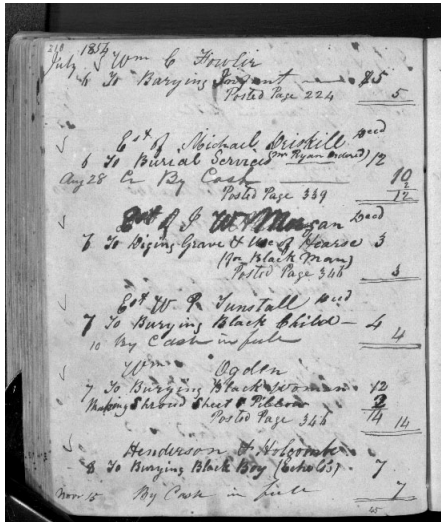 218
July 1854 Wm C Fowler
6 To Burying Infant $5
Posted Page 224 5
Est of Michael Driskill Decd
6 To Burial Services (Mr Ryan ordered) 12
Aug 28 Cr By Cash 10
2
Posted Page 339 12
Est of J W Morgan Decd
7 To Diging Grave & Use of Hearse 3
(For Black Man)
Posted Page 346 3
Est W P Tunstall Decd
7 To Burying Black Child 4
10 By Cash in full 4
Wm Ogden
7 To Burying Black Woman 12
Making Shroud Sheet & Pillow 2
14
Posted Page 344 14
Henderson & Holcombe
8 To Burying Black Boy (Echols's) 7
Nov 15 By Cash in full 7
45